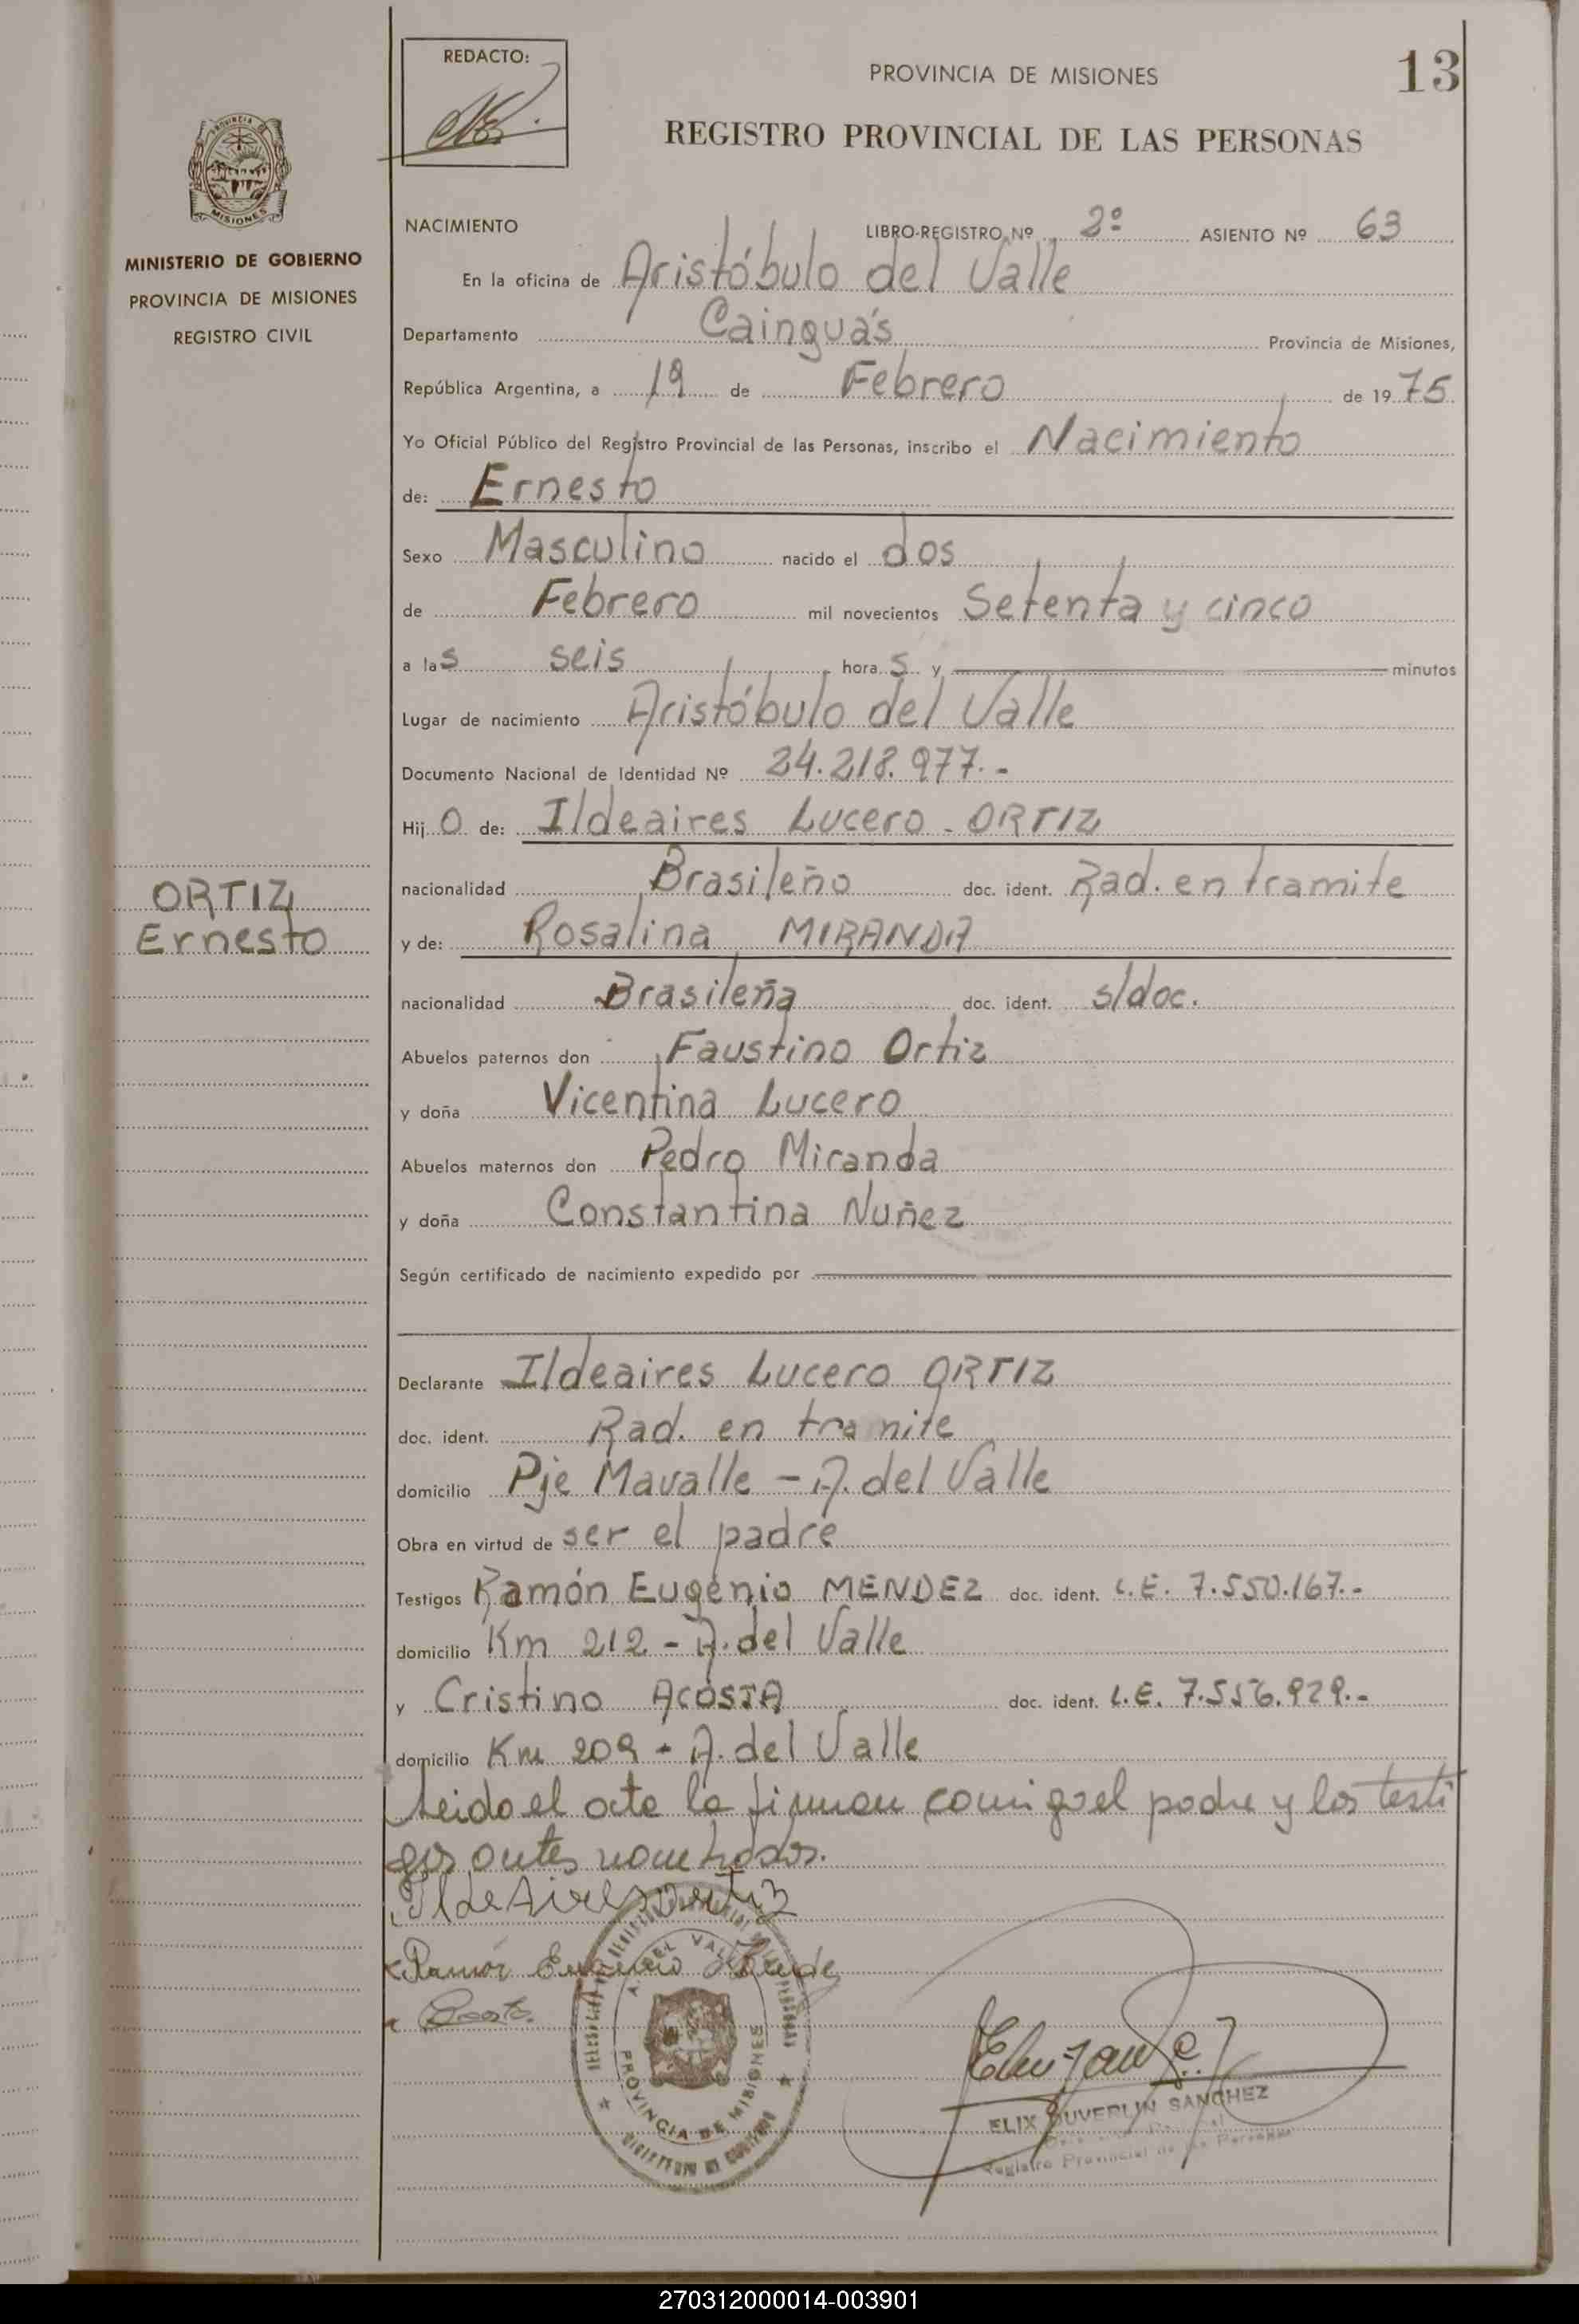 REDACTO:
PROVINCIA DE MISIONES
13
REGISTRO PROVINCIAL DE LAS PERSONAS
PROVINCIA DE
MISIONES
MINISTERIO DE GOBIERNO
PROVINCIA DE MISIONES
REGISTRO CIVIL
NACIMIENTO LIBRO-REGISTRO Nº 2º ASIENTO Nº 63
En la oficina de Aristóbulo del Valle
Departamento Cainguás Provincia de Misiones,
República Argentina, a 19 de Febrero de 1975
Yo Oficial Público del Registro Provincial de las Personas, inscribo el Nacimiento
de: Ernesto
Sexo Masculino nacido el dos
de Febrero mil novecientos Setenta y cinco
a las seis horas y minutos
Lugar de nacimiento Aristóbulo del Valle
Documento Nacional de Identidad Nº 24.218.977.-
Hijo de: Ildeaires Lucero - ORTIZ
nacionalidad Brasileño doc. ident. Rad. en tramite
ORTIZ
Ernesto
y de: Rosalina MIRANDA
nacionalidad Brasileña doc. ident. s/doc.
Abuelos paternos don Faustino Ortiz
y doña Vicentina Lucero
Abuelos maternos don Pedro Miranda
y doña Constantina Nuñez
Según certificado de nacimiento expedido por
Declarante Ildeaires Lucero ORTIZ
doc. ident. Rad. en tramite
domicilio Pje Mavalle - A. del Valle
Obra en virtud de ser el padre
Testigos Ramón Eugenio MENDEZ doc. ident. L.E. 7.550.167.-
domicilio Km 212 - A. del Valle
y Cristino ACOSTA doc. ident. L.E. 7.556.929.-
domicilio Km 209 - A. del Valle
Leido el acta la firman comigo el padre y los testi
gos antes nombrados.
IldeAires Ortiz
Ramón Eugenio Mendez
A. DEL VALLE
PROVINCIA DE MISIONES
ELIX DUVERLIN SANCHEZ
Registro Provincial de las Personas
270312000014-003901